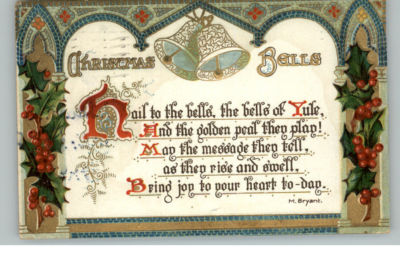 Christmas Bells
Hail to the bells, the bells of Yule,
And the golden peal they play!
May the message they tell,
as they rise and swell,
Bring joy to your heart to-day.
M. Bryant.